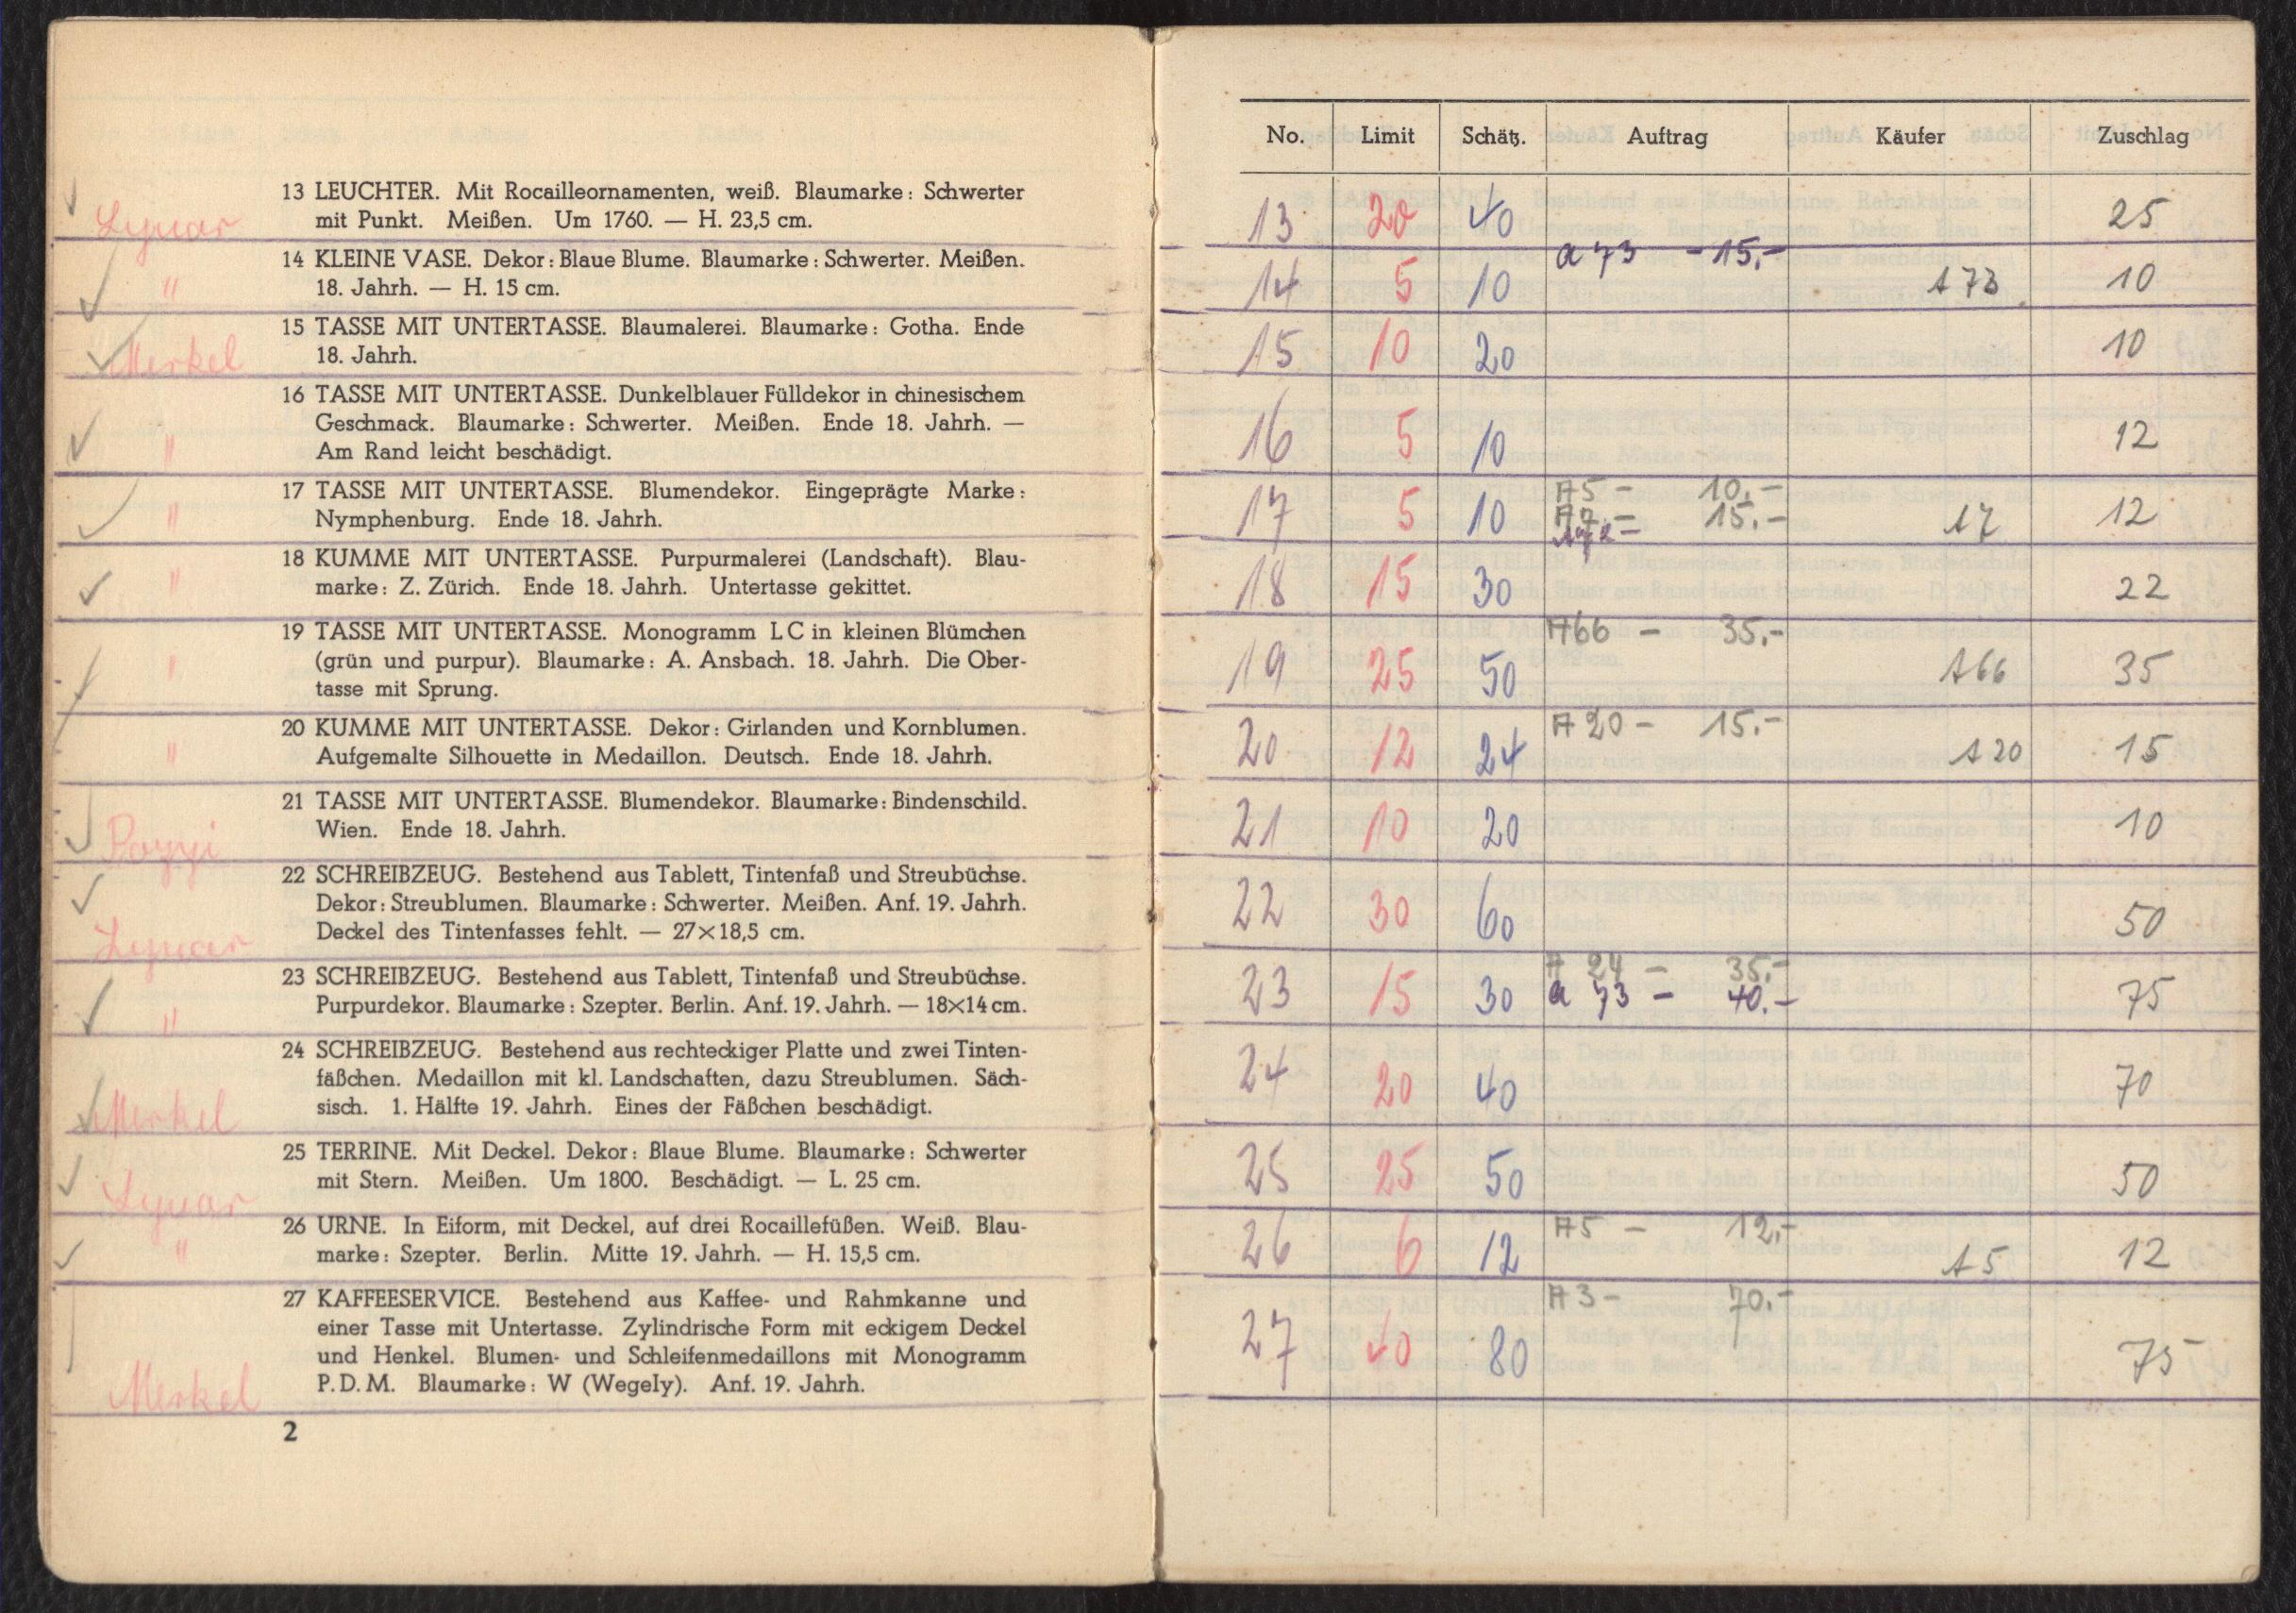 13 LEUCHTER. Mit Rocailleornamenten, weiß. Blaumarke: Schwerter
mit Punkt. Meißen. Um 1760. — H. 23,5 cm.
14 KLEINE VASE. Dekor: Blaue Blume. Blaumarke: Schwerter. Meißen.
"
18. Jahrh. — H. 15 cm.
15 TASSE MIT UNTERTASSE. Blaumalerei. Blaumarke: Gotha. Ende
Merkel
18. Jahrh.
16 TASSE MIT UNTERTASSE. Dunkelblauer Fülldekor in chinesischem
Geschmack. Blaumarke: Schwerter. Meißen. Ende 18. Jahrh. —
"
Am Rand leicht beschädigt.
17 TASSE MIT UNTERTASSE. Blumendekor. Eingeprägte Marke:
"
Nymphenburg. Ende 18. Jahrh.
18 KUMME MIT UNTERTASSE. Purpurmalerei (Landschaft). Blau-
"
marke: Z. Zürich. Ende 18. Jahrh. Untertasse gekittet.
19 TASSE MIT UNTERTASSE. Monogramm L C in kleinen Blümchen
"
(grün und purpur). Blaumarke: A. Ansbach. 18. Jahrh. Die Ober-
tasse mit Sprung.
20 KUMME MIT UNTERTASSE. Dekor: Girlanden und Kornblumen.
"
Aufgemalte Silhouette in Medaillon. Deutsch. Ende 18. Jahrh.
21 TASSE MIT UNTERTASSE. Blumendekor. Blaumarke: Bindenschild.
Wien. Ende 18. Jahrh.
22 SCHREIBZEUG. Bestehend aus Tablett, Tintenfaß und Streubüchse.
Dekor: Streublumen. Blaumarke: Schwerter. Meißen. Anf. 19. Jahrh.
Deckel des Tintenfasses fehlt. — 27×18,5 cm.
23 SCHREIBZEUG. Bestehend aus Tablett, Tintenfaß und Streubüchse.
"
Purpurdekor. Blaumarke: Szepter. Berlin. Anf. 19. Jahrh. — 18×14 cm.
24 SCHREIBZEUG. Bestehend aus rechteckiger Platte und zwei Tinten-
fäßchen. Medaillon mit kl. Landschaften, dazu Streublumen. Säch-
Merkel
sisch. 1. Hälfte 19. Jahrh. Eines der Fäßchen beschädigt.
25 TERRINE. Mit Deckel. Dekor: Blaue Blume. Blaumarke: Schwerter
mit Stern. Meißen. Um 1800. Beschädigt. — L. 25 cm.
26 URNE. In Eiform, mit Deckel, auf drei Rocaillefüßen. Weiß. Blau-
"
marke: Szepter. Berlin. Mitte 19. Jahrh. — H. 15,5 cm.
27 KAFFEESERVICE. Bestehend aus Kaffee- und Rahmkanne und
einer Tasse mit Untertasse. Zylindrische Form mit eckigem Deckel
und Henkel. Blumen- und Schleifenmedaillons mit Monogramm
Merkel
P. D. M. Blaumarke: W (Wegely). Anf. 19. Jahrh.
2
No. Limit Schätz. Auftrag Käufer Zuschlag
13 20 40 25
a 73 - 15.-
14 5 10 A 73 10
15 10 20 10
16 5 10 12
A5 - 10.-
A7.- 15.-
17 5 10 A7 12
18 15 30 22
A66 - 35.-
19 25 50 A66 35
A 20 - 15.-
20 12 24 A 20 15
21 10 20 10
22 30 60 50
A 24 - 35.-
23 15 30 a 73 - 40.- 75
24 20 40 70
25 25 50 50
A5 - 12.-
26 6 12 A5 12
A3 - 70.-
27 40 80 75